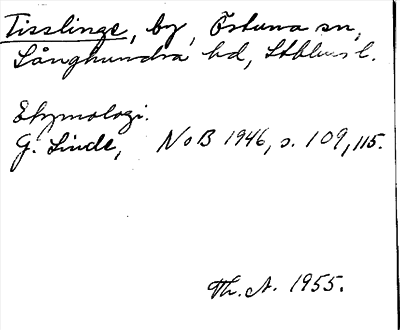 Tisslinge, by, Östuna sn,
Långhundra hd, Sthlms l.
Etymologi.
G. Linde, NoB 1946, s. 109, 115.
Th. A. 1955.